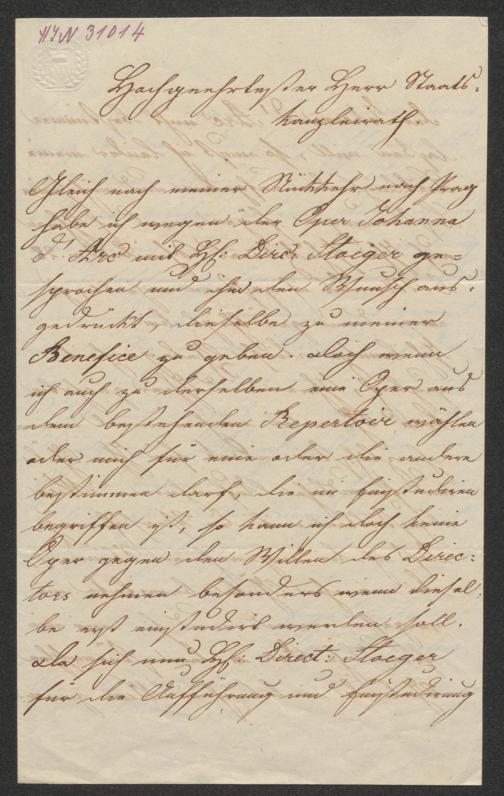 HIN 31014
Hochgeehrtester Herr Staats-
kanzleirath
Gleich nach meiner Rückkehr nach Prag
habe ich wegen der Oper Johanna
d'Arc mit H: Dirct Stoeger ge=
sprochen und ihm den Wunsch aus-
gedrückt, dieselbe zu meiner
Benefice zu geben. doch wenn
ich auch zu derselben eine Oper aus
dem bestehenden Repertoir wählen
oder mich für eine oder die andere
bestimmen darf, die im Einstudiren
begriffen ist, so kann ich doch keine
Oper gegen den Willen des Direc-
tors nehmen besonders wenn diesel-
be erst einstudirt werden soll.
da sich nun H: Direct: Stoeger
für die Aufführung und Einstudirung